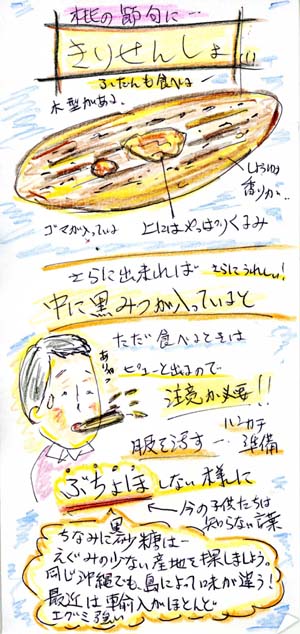 桃の節句に…
きりせんしょ
ふだんも食べる
木型がある
しょうゆの
香りが…
ゴマが入っている
上にはやっぱりくるみ
さらに出来れば さらにうれしい!
中に黒みつが入っていると
ただ食べるときは
ピューと出るので
注意が必要!!
ハンカチ
準備
服を汚す…
ぶちょほしない様に
今の子供たちは
知らない言葉
黒
ちなみに砂糖は…
えぐみの少ない産地を探しましょう。
同じ沖縄でも島によって味が違う!
最近は輸入がほとんど
エグミ強い